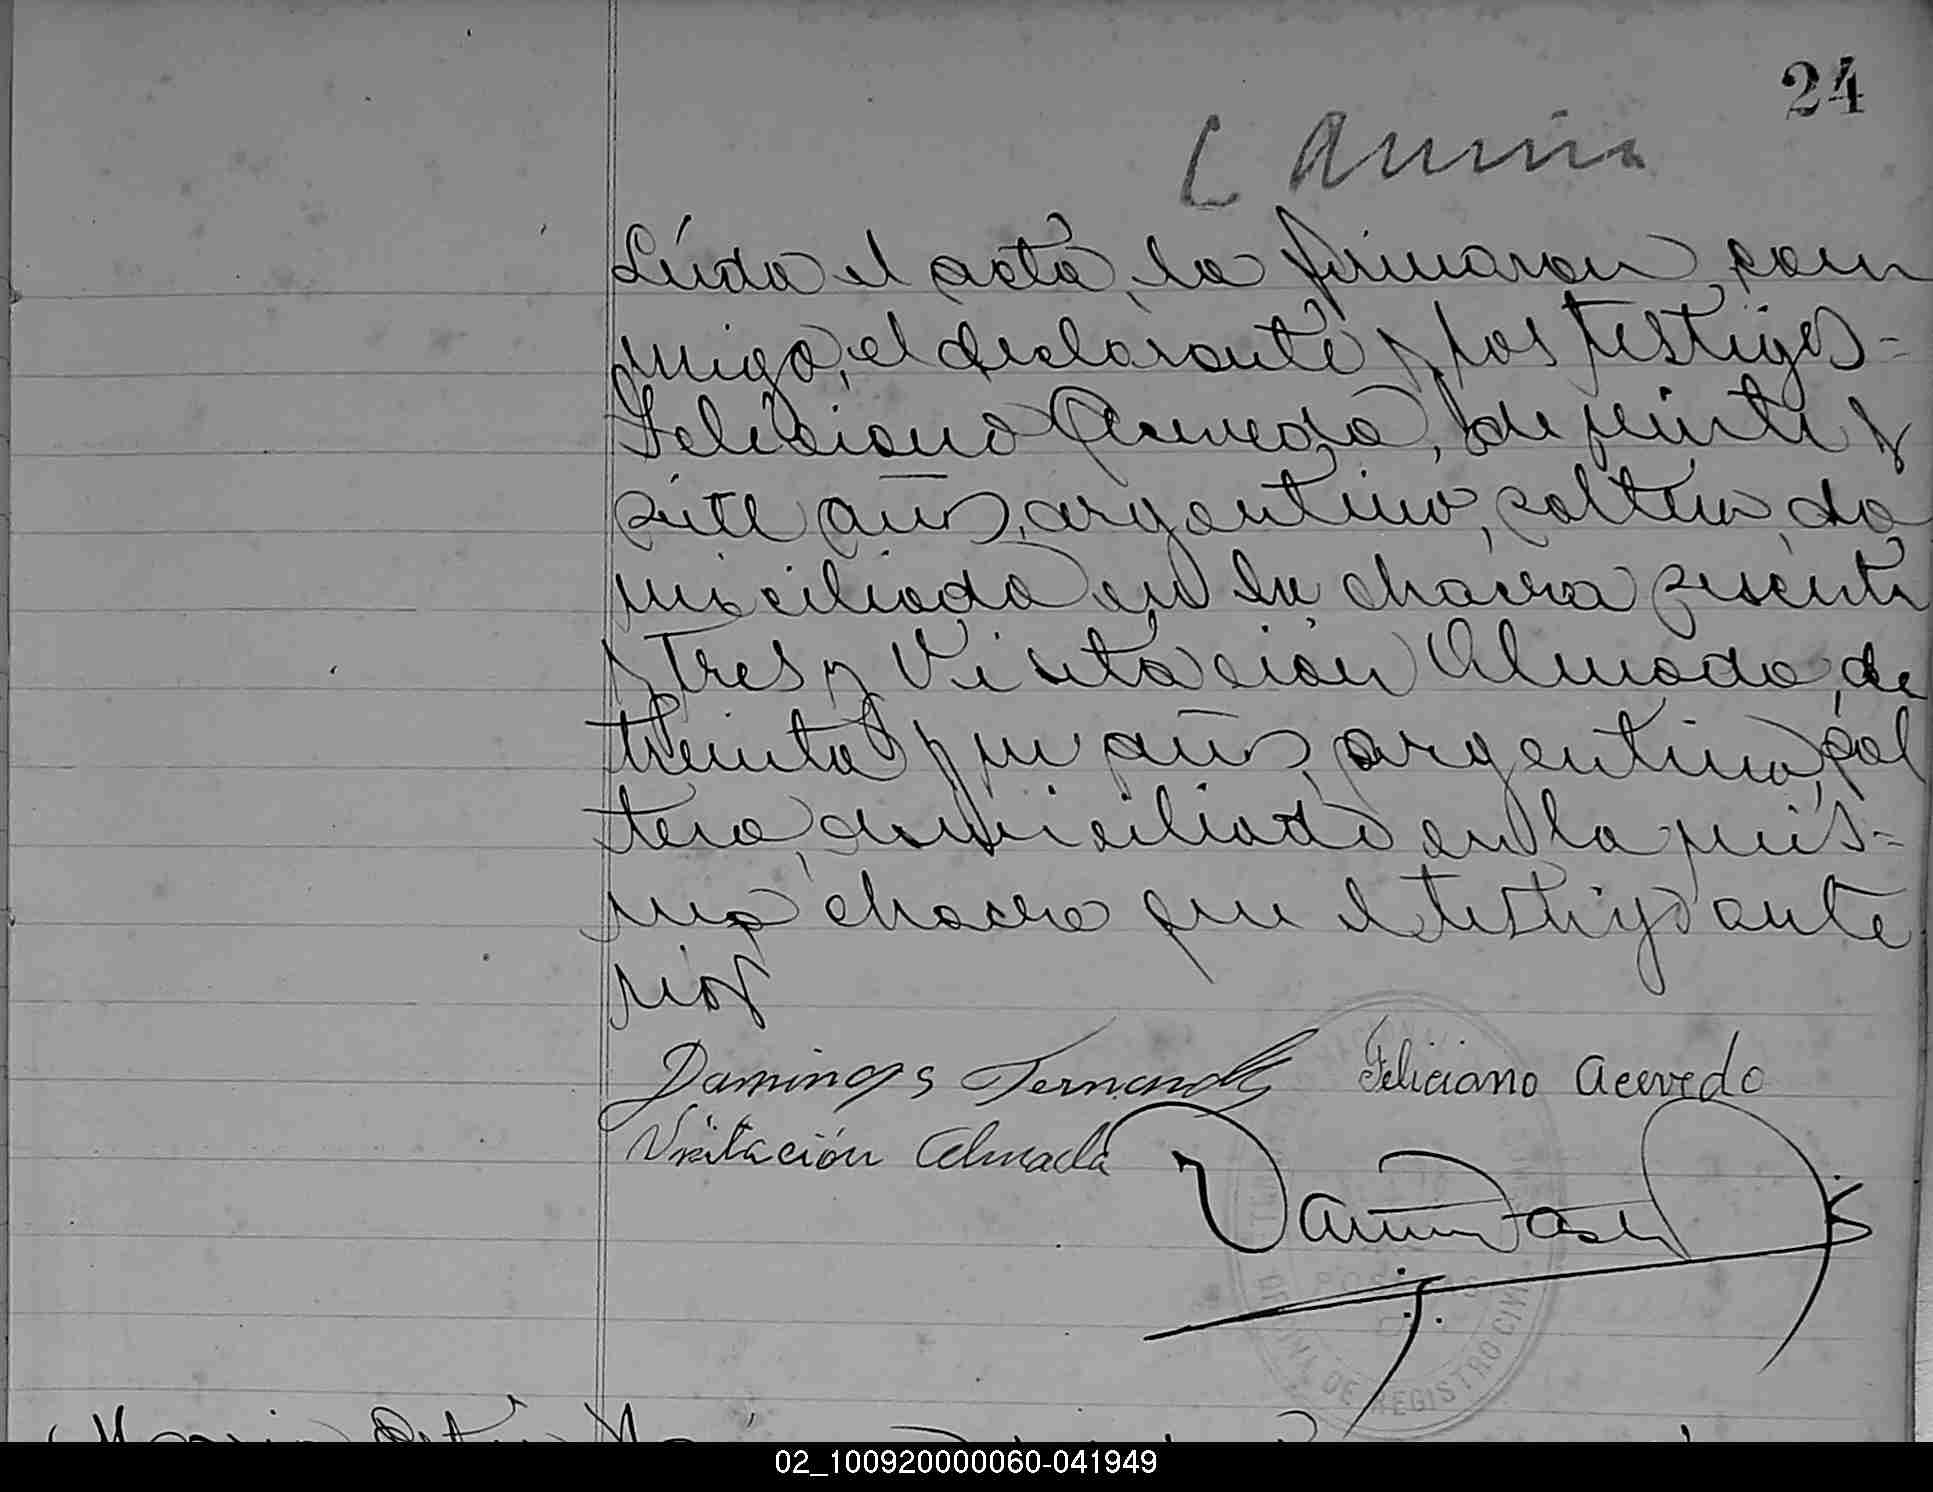 24
Leída el acta, la firmaron con
migo, el declarante y los testigos-
Feliciano Acevedo, de veinte y
siete años, argentino, soltero, do
miciliado en la chacra sesenta
y tres y Visitación Almada, de
treinta y un años, argentino, sol
tero, domiciliado en la mis-
ma chacra que el testigo ante
rior
Domingos Fernandes Feliciano Acevedo
Visitación Almada
POSADAS
OFICINA DE REGISTRO CIVIL
02_100920000060-041949